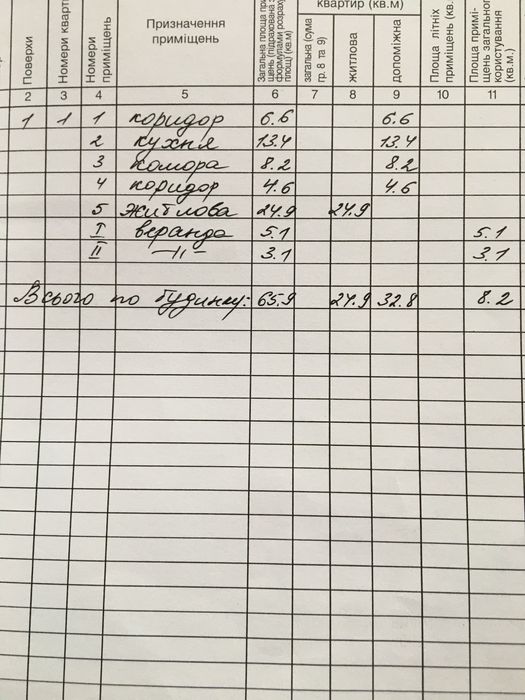 Поверхи
Номери кварти
Номери
приміщень
Призначення
приміщень
Загальна площа при
щень (підрахована з
формулами розрах
площі) (кв.м)
квартир (кв.м)
загальна (сума
гр. 8 та 9)
житлова
допоміжна
Площа літніх
приміщень (кв.
Площа примі-
щень загального
користування
(кв.м.)
2 3 4 5 6 7 8 9 10 11
1 1 1 коридор 6.6 6.6
2 кухня 13.4 13.4
3 комора 8.2 8.2
4 коридор 4.6 4.6
5 житлова 24.9 24.9
I веранда 5.1 5.1
II —//— 3.1 3.1
Всього по будинку: 65.9 24.9 32.8 8.2